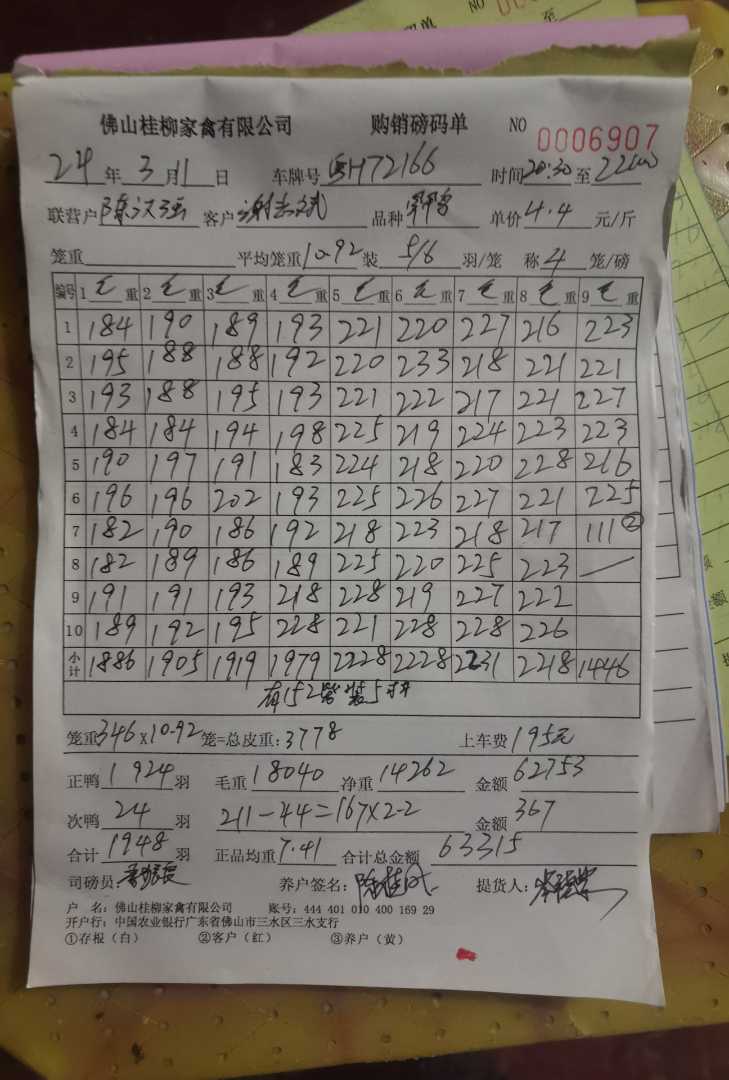 佛山桂柳家禽有限公司 购销磅码单 NO 0006907
24年3月11日 车牌号 粤H72166 时间20:30至22:00
联营户 陈汉强 客户 品种 单价4.4元/斤
笼重 平均笼重10.92 装5/6羽/笼 称4笼/磅
编号 1毛重 2毛重 3毛重 4毛重 5毛重 6毛重 7毛重 8毛重 9毛重
1 184 190 189 193 221 220 227 216 223
2 195 188 188 192 220 233 218 221 221
3 193 188 195 193 221 222 217 221 227
4 184 184 194 198 225 219 224 223 223
5 190 197 191 183 224 218 220 228 216
6 196 196 202 193 225 226 227 221 225
7 182 190 186 192 218 223 218 217 111②
8 182 189 186 189 225 220 225 223 —
9 191 191 193 218 228 219 227 222
10 189 192 195 228 221 228 228 226
小计 1886 1905 1919 1979 2228 2228 2231 2218 1446
有152笼装5只
笼重346×10.92笼=总皮重:3778 上车费195元
正鸭1924羽 毛重18040 净重14262 金额62753
次鸭24羽 211-44=167×2.2 金额367
合计1948羽 正品均重7.41 合计总金额63315
司磅员: 养户签名: 提货人:
户 名:佛山桂柳家禽有限公司 账号:444 401 010 400 169 29
开户行:中国农业银行广东省佛山市三水区三水支行
①存根(白) ②客户(红) ③养户(黄)